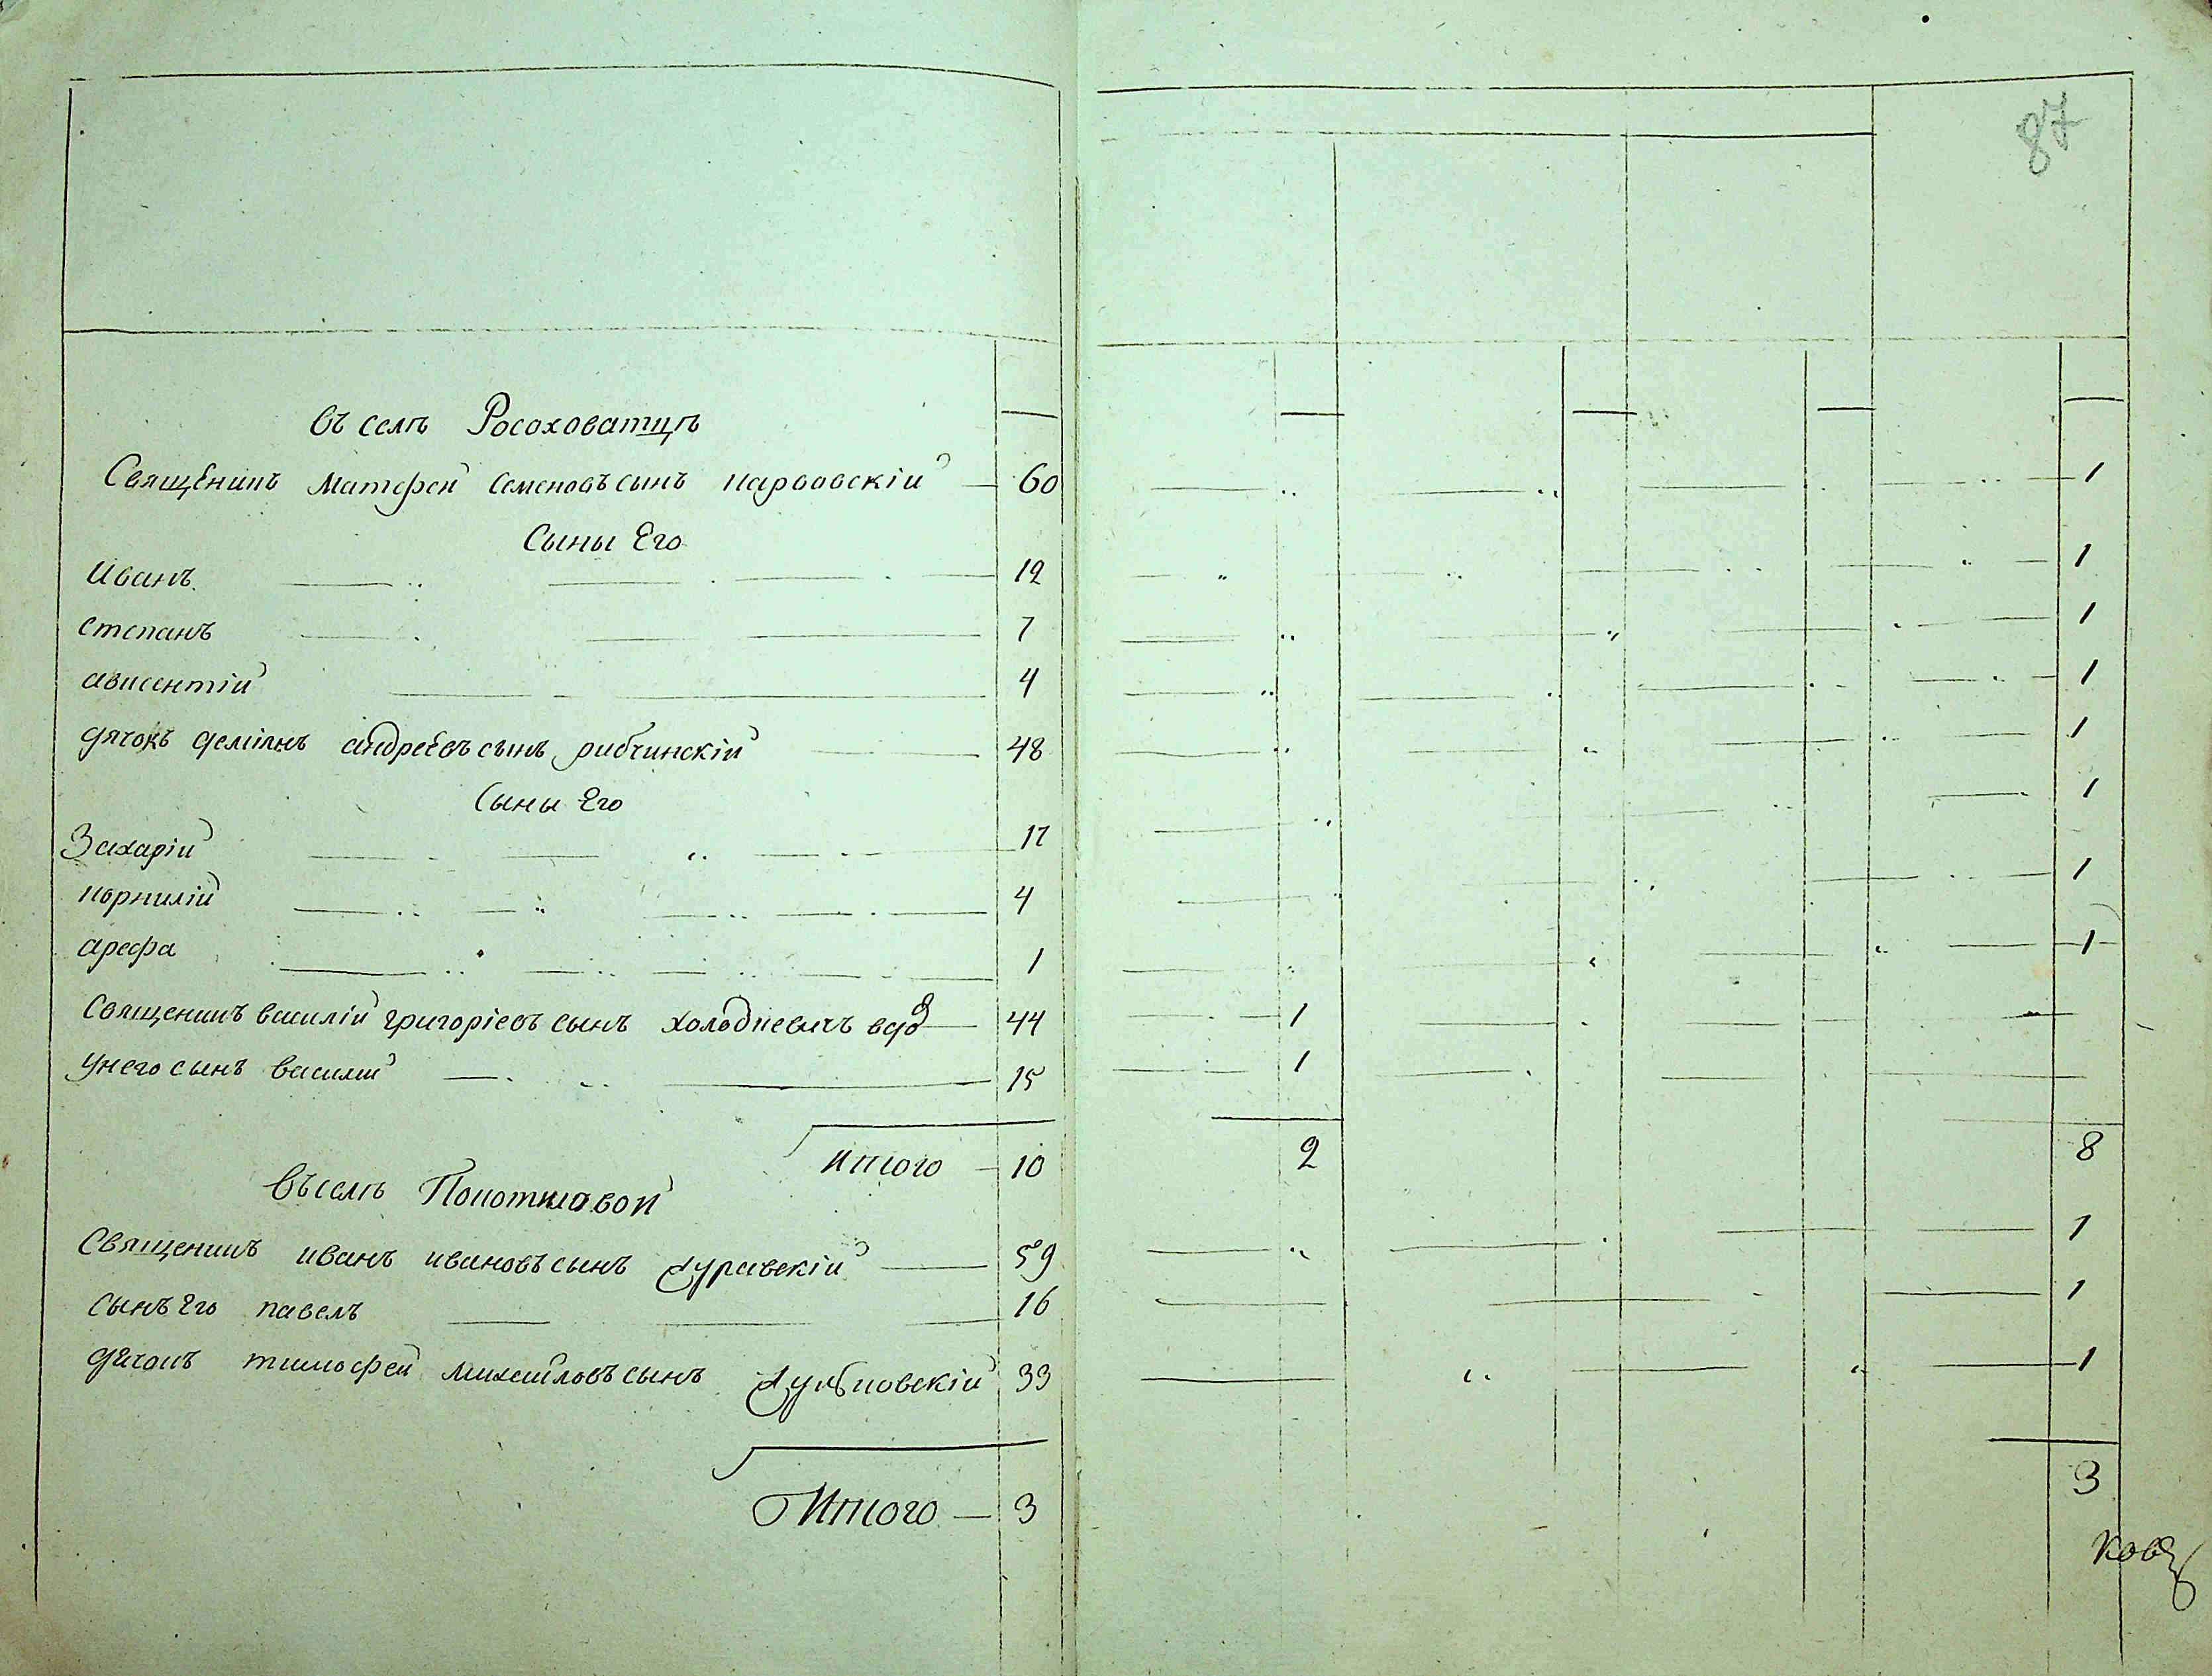 87
въ селѣ Росоховатцѣ
Священикъ матфей семеновъ сынъ карвовскій — 60 1
Сыны Его
Иванъ 12 1
степанъ 7 1
авксентій 4 1
дячокъ деміянъ андреевъ сынъ рибчинскій 48 1
Сыны Его
Захарій 17 1
корнилій 4 1
арефа 1 1
Священикъ василій григоріевъ сынъ холодкевичъ вдо 44 1
унего сынъ василій 15 1
Итого — 10 2 8
въ селѣ Покотиловой
Священикъ иванъ ивановъ сынъ журавскій — 59 1
сынъ Его павелъ 16 1
дячокъ тимофей михайловъ сынъ 33 1
Итого — 3 3